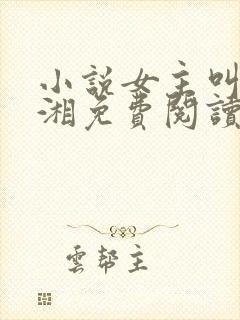 小說女主叫
湘免費閱讀
雲幫主